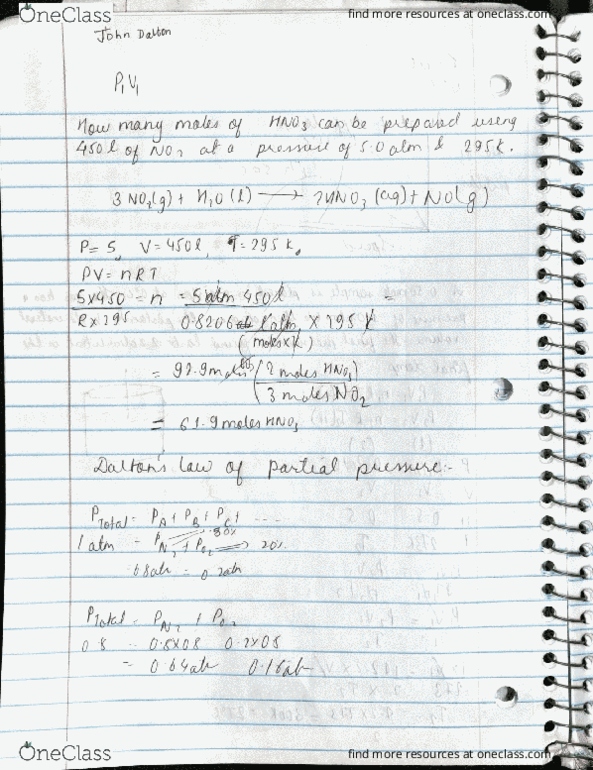 OneClass
find more resources at oneclass.com
John Dalton
P₁V₁
How many moles of HNO₃ can be prepared using
450 l of NO₂ at a pressure of 5.0 atm & 295 K.
3 NO₂(g) + H₂O (l) → 2HNO₃ (aq) + NO(g)
P = 5, V = 450 l, T = 295 K,
PV = nRT
5x450 = n = 5 atm 450 l =
R x 295 0.8206 l atm x 295 K
(moles x K)
= 92.9 moles (2 moles HNO₃)
3 moles NO₂
= 61.9 moles HNO₃
Dalton's law of partial pressure:-
P Total = P_A + P_B + P_C + ....
80%
1 atm = P_N₂ + P_O₂ → 20%
P Total = P_N₂ + P_O₂
0.8 0.8x0.8
= 0.64 0.16
OneClass
find more resources at oneclass.com